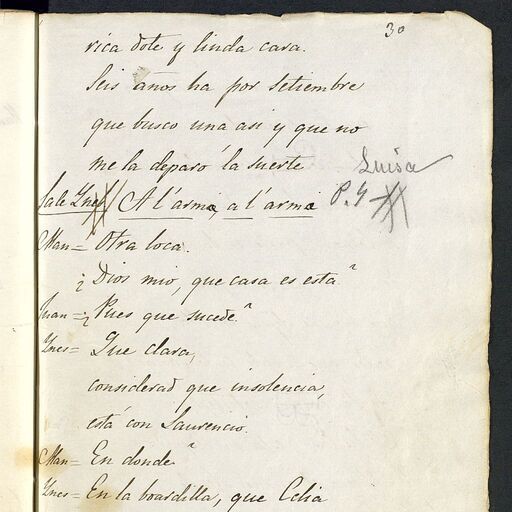 30
rica dote y linda cara.
Seis años ha por setiembre
que busco una asi y que no
me la deparó la suerte
Luisa
Sale Ynes A l'arma, a l'arma P. 4
Man= Otra loca.
¿Dios mio, que casa es esta?
Juan= ¿Pues que sucede?
Ynes= Que clara,
considerad que insolencia,
está con Laurencio.
Man= En donde?
Ynes= En la boardilla, que Celia